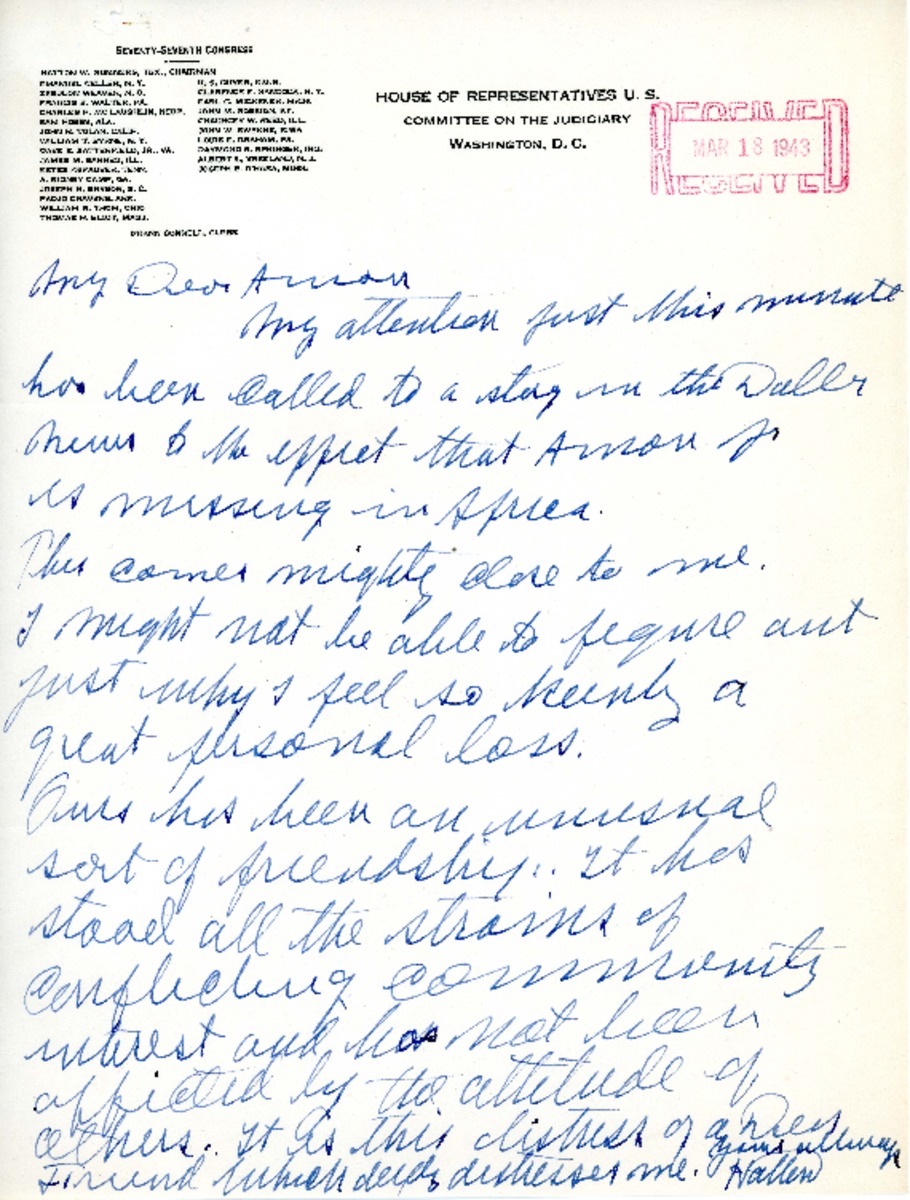 SEVENTY-SEVENTH CONGRESS
HATTON W. SUMNERS, TEX., CHAIRMAN
EMANUEL CELLER, N. Y.
ZEBULON WEAVER, N. C.
FRANCIS E. WALTER, PA.
CHARLES F. MCLAUGHLIN, NEBR.
SAM HOBBS, ALA.
JOHN H. TOLAN, CALIF.
WILLIAM T. BYRNE, N. Y.
DAVE E. SATTERFIELD, JR., VA.
JAMES M. BARNES, ILL.
ESTES KEFAUVER, TENN.
A. SIDNEY CAMP, GA.
JOSEPH R. BRYSON, S. C.
FADJO CRAVENS, ARK.
WILLIAM R. THOM, OHIO
THOMAS H. ELIOT, MASS.
U. S. GUYER, KANS.
CLARENCE E. HANCOCK, N. Y.
EARL C. MICHENER, MICH.
JOHN M. ROBSION, KY.
CHAUNCEY W. REED, ILL.
JOHN W. GWYNNE, IOWA
LOUIS E. GRAHAM, PA.
RAYMOND S. SPRINGER, IND.
ALBERT L. VREELAND, N. J.
JOSEPH P. O'HARA, MINN.
CLERK
HOUSE OF REPRESENTATIVES U. S.
COMMITTEE ON THE JUDICIARY
WASHINGTON, D. C.
RECEIVED
MAR 18 1943
RECEIVED
My Dear Amon
My attention just this minute
has been called to a story in the Dallas
News to the effect that Amon Jr
is missing in Africa.
This comes mighty close to me.
I might not be able to figure out
just why I feel so keenly a
great personal loss.
Ours has been an unusual
sort of friendship. It has
stood all the strains of
conflicting community
interest and has not been
affected by the attitude of
others. It is this distress of a Dear
Friend which deeply distresses me.
yours always
Hatton